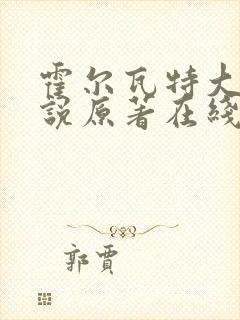 霍尔瓦特大
说原著在线
郭贾